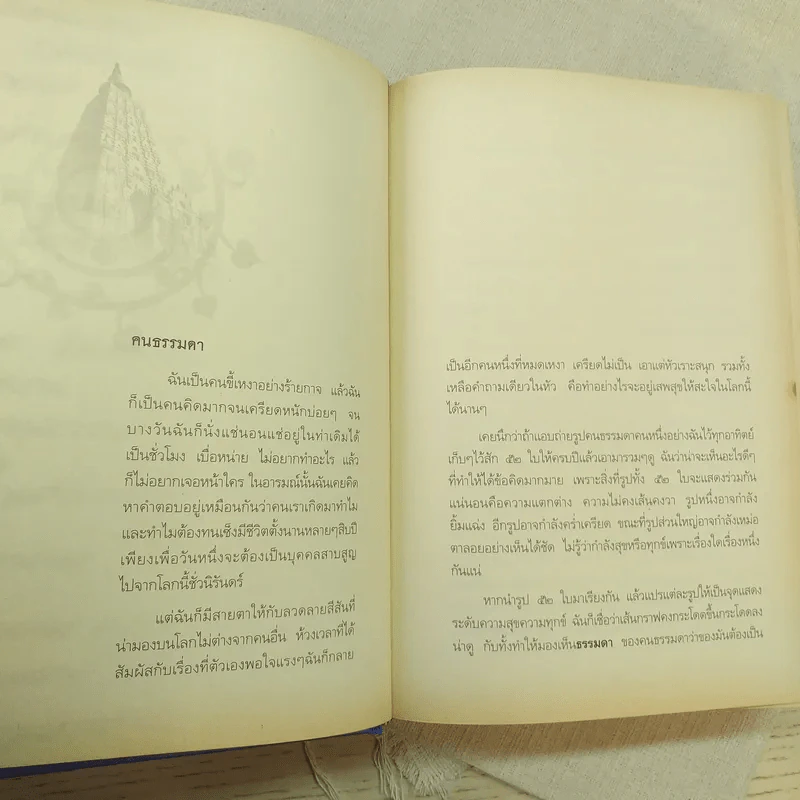 คนธรรมดา
ฉันเป็นคนขี้เหงาอย่างร้ายกาจ แล้วฉัน
ก็เป็นคนคิดมากจนเครียดหนักบ่อยๆ จน
บางวันฉันก็นั่งแช่นอนแช่อยู่ในท่าเดิมได้
เป็นชั่วโมง เบื่อหน่าย ไม่อยากทำอะไร แล้ว
ก็ไม่อยากเจอหน้าใคร ในอารมณ์นั้นฉันเคยคิด
หาคำตอบอยู่เหมือนกันว่าคนเราเกิดมาทำไม
และทำไมต้องทนเซ็งมีชีวิตตั้งนานหลายๆสิบปี
เพียงเพื่อวันหนึ่งจะต้องเป็นบุคคลสาบสูญ
ไปจากโลกนี้ชั่วนิรันดร์
แต่ฉันก็มีสายตาให้กับลวดลายสีสันที่
น่ามองบนโลกไม่ต่างจากคนอื่น ห้วงเวลาที่ได้
สัมผัสกับเรื่องที่ตัวเองพอใจแรงๆฉันก็กลาย
เป็นอีกคนหนึ่งที่หมดเหงา เครียดไม่เป็น เอาแต่หัวเราะสนุก รวมทั้ง
เหลือคำถามเดียวในหัว คือทำอย่างไรจะอยู่เสพสุขให้สะใจในโลกนี้
ได้นานๆ
เคยนึกว่าถ้าแอบถ่ายรูปคนธรรมดาคนหนึ่งอย่างฉันไว้ทุกอาทิตย์
เก็บๆไว้สัก ๕๒ ใบให้ครบปีแล้วเอามารวมๆดู ฉันว่าน่าจะเห็นอะไรดีๆ
ที่ทำให้ได้ข้อคิดมากมาย เพราะสิ่งที่รูปทั้ง ๕๒ ใบจะแสดงร่วมกัน
แน่นอนคือความแตกต่าง ความไม่คงเส้นคงวา รูปหนึ่งอาจกำลัง
ยิ้มแฉ่ง อีกรูปอาจกำลังคร่ำเครียด ขณะที่รูปส่วนใหญ่อาจกำลังเหม่อ
ตาลอยอย่างเห็นได้ชัด ไม่รู้ว่ากำลังสุขหรือทุกข์เพราะเรื่องใดเรื่องหนึ่ง
กันแน่
หากนำรูป ๕๒ ใบมาเรียงกัน แล้วแปรแต่ละรูปให้เป็นจุดแสดง
ระดับความสุขความทุกข์ ฉันก็เชื่อว่าเส้นกราฟคงกระโดดขึ้นกระโดดลง
น่าดู กับทั้งทำให้มองเห็นธรรมดา ของคนธรรมดาว่าของมันต้องเป็น